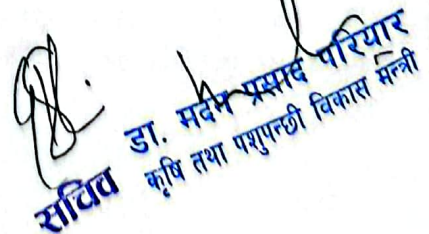 डा. मदन प्रसाद परियार
कृषि तथा पशुपन्छी विकास मन्त्री
सचिव